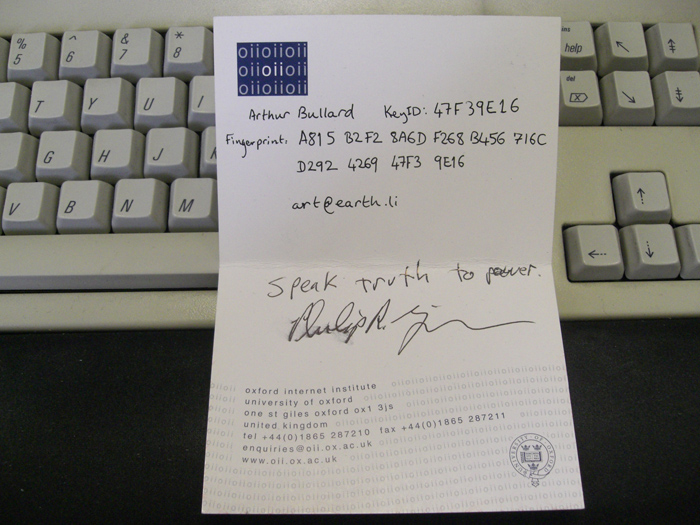 oiioiioii
oiioiioii
oiioiioii
Arthur Bullard KeyID: 47F39E16
Fingerprint: A815 B2F2 8A6D F268 B456 716C
D292 4269 47F3 9E16
art@earth.li
Speak truth to power.
Philip R.
oxford internet institute
university of oxford
one st giles oxford ox1 3js
united kingdom
tel +44(0)1865 287210 fax +44(0)1865 287211
enquiries@oii.ox.ac.uk
www.oii.ox.ac.uk
UNIVERSITY OF OXFORD
% 5
^ 6
& 7
* 8
T
Y
U
I
G
H
J
V
B
N
M
ins
help
del